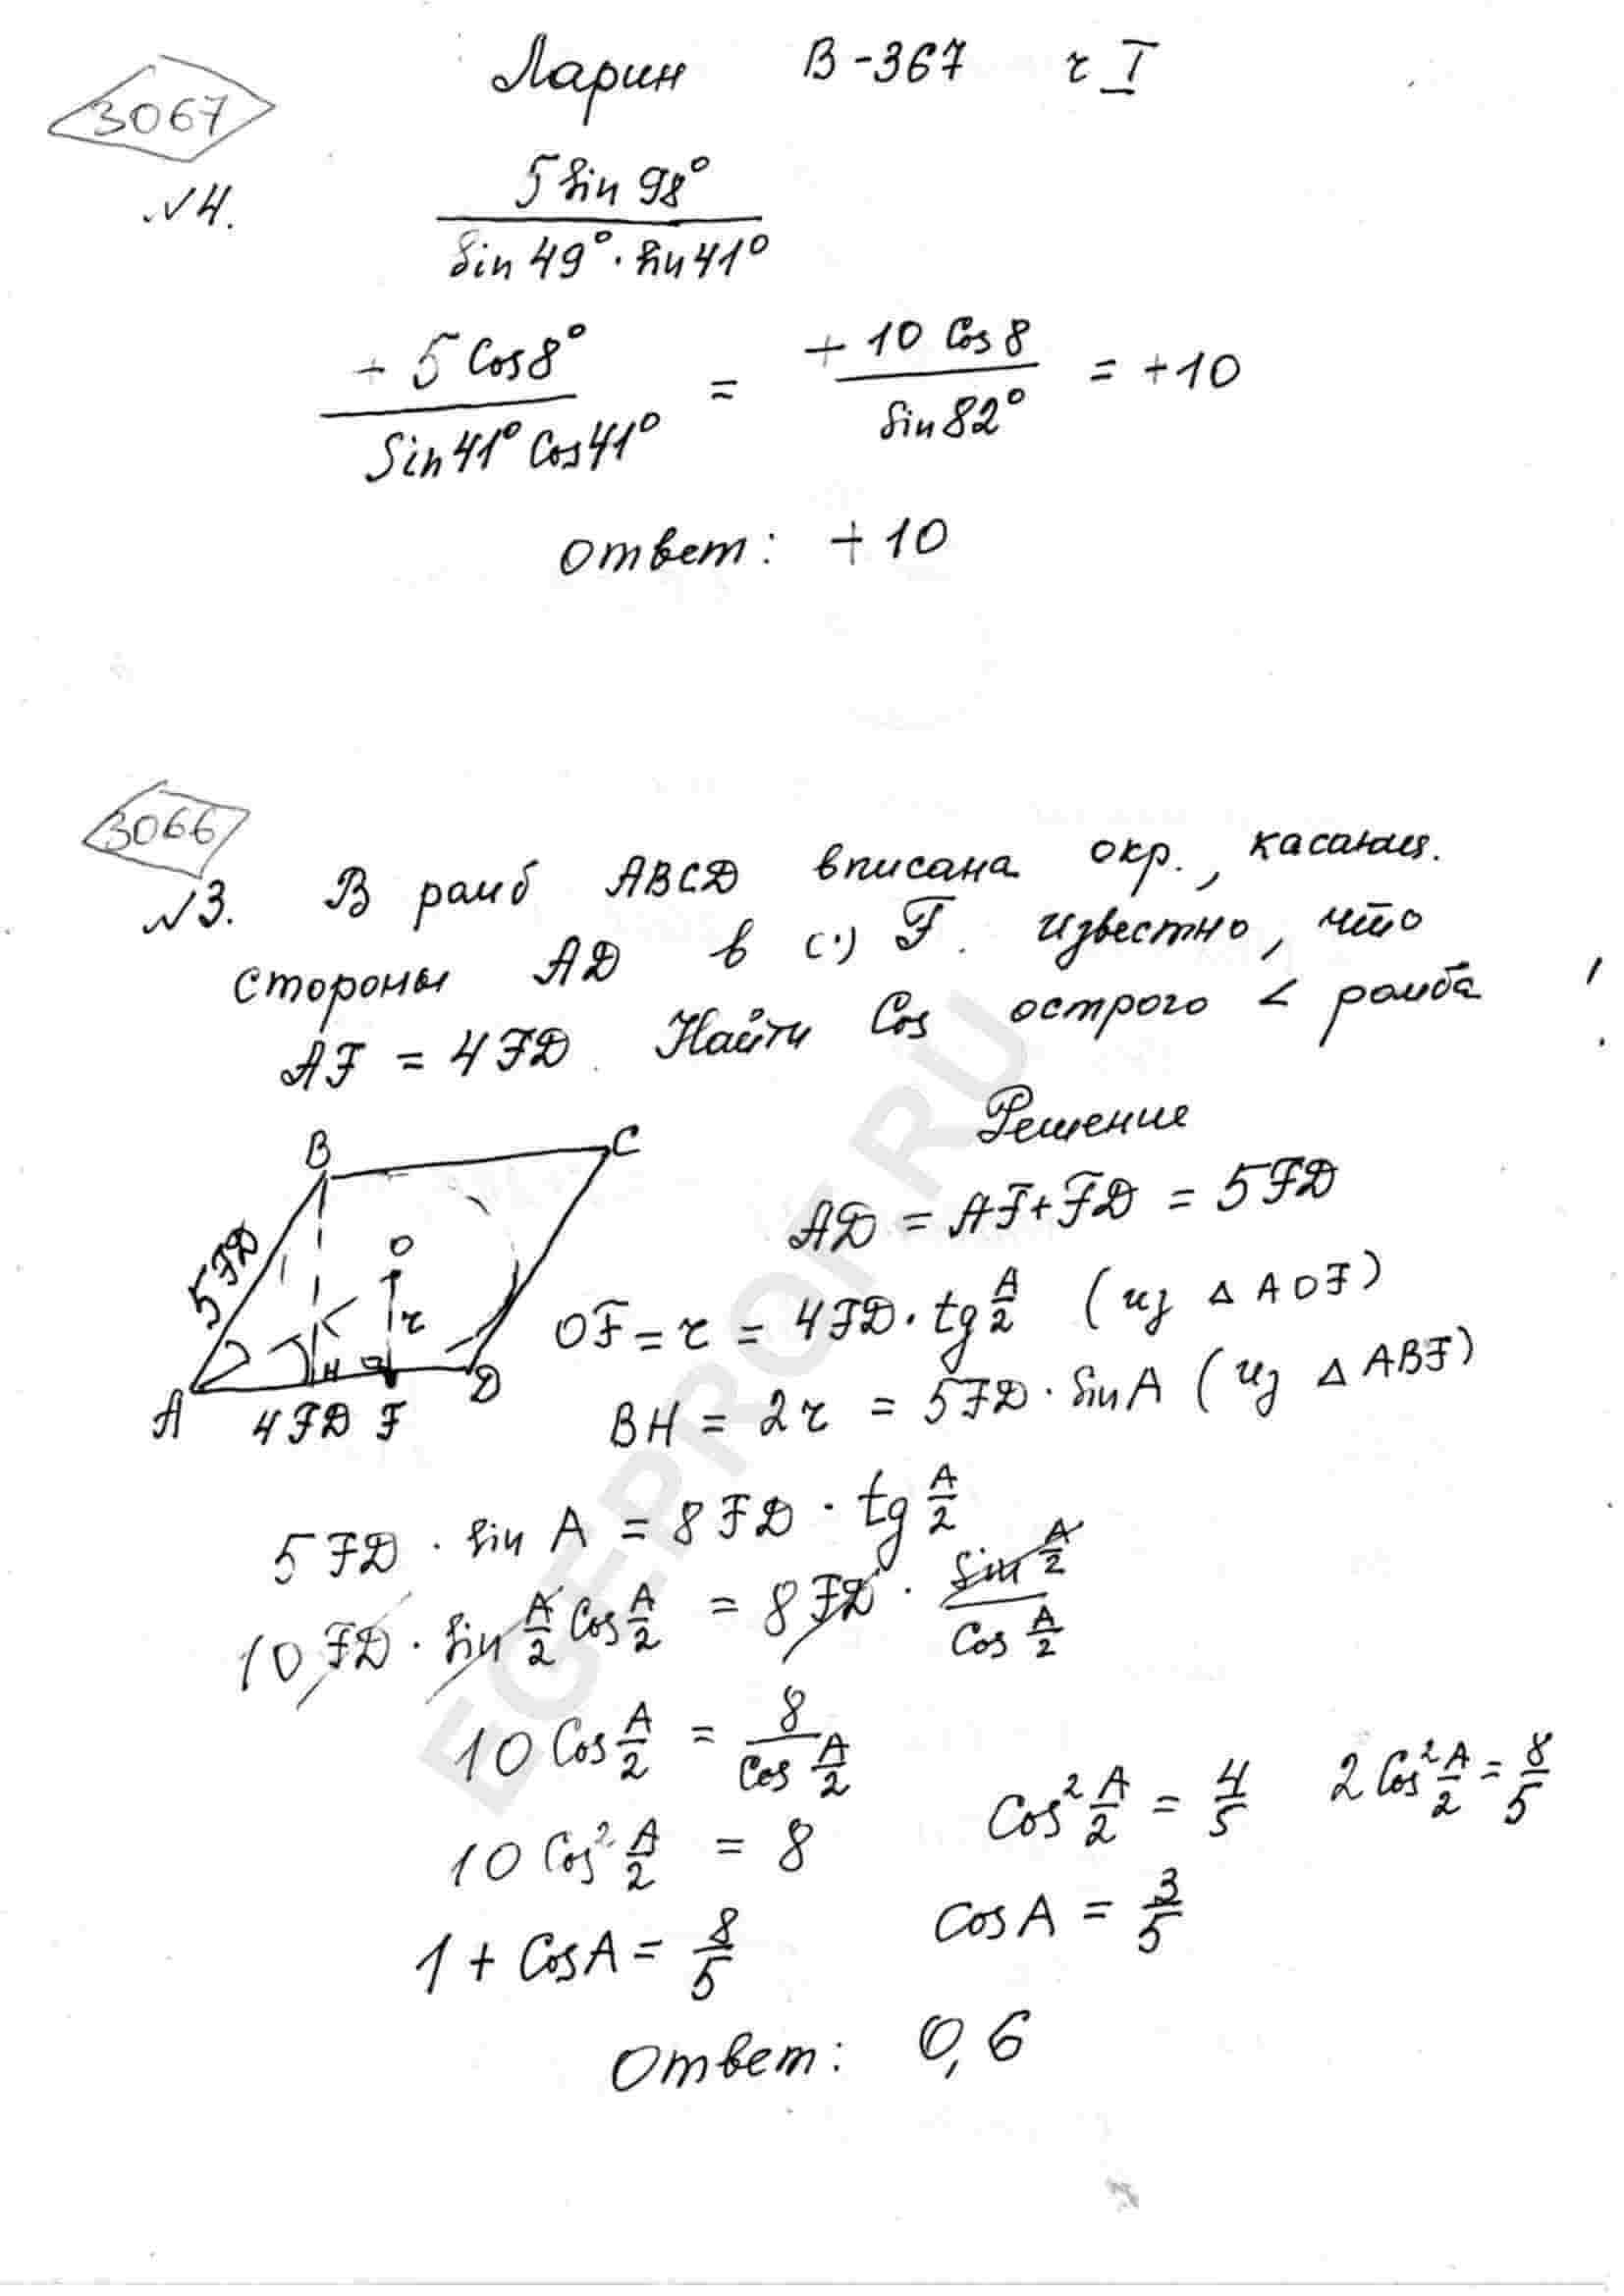 Ларин В-367 ч I
3067
№4. 5 Sin 98° / Sin 49° · Sin 41°
+ 5 Cos 8° / Sin 41° Cos 41° = + 10 Cos 8 / Sin 82° = +10
Ответ: +10
3066
№3. В ромб ABCD вписана окр., касающ.
стороны AD в (·) F. Известно, что
AF = 4FD. Найти Cos острого < ромба !
Решение
B C
AD = AF+FD = 5FD
5FD O r
OF = r = 4FD · tg A/2 (из △ AOF)
A 4FD H F D
BH = 2r = 5FD · Sin A (из △ ABF)
5FD · Sin A = 8FD · tg A/2
10 FD · Sin A/2 Cos A/2 = 8 FD · Sin A/2 / Cos A/2
10 Cos A/2 = 8 / Cos A/2
Cos² A/2 = 4/5 2 Cos² A/2 = 8/5
10 Cos² A/2 = 8
1 + Cos A = 8/5 Cos A = 3/5
Ответ: 0,6
EGEPROF.RU